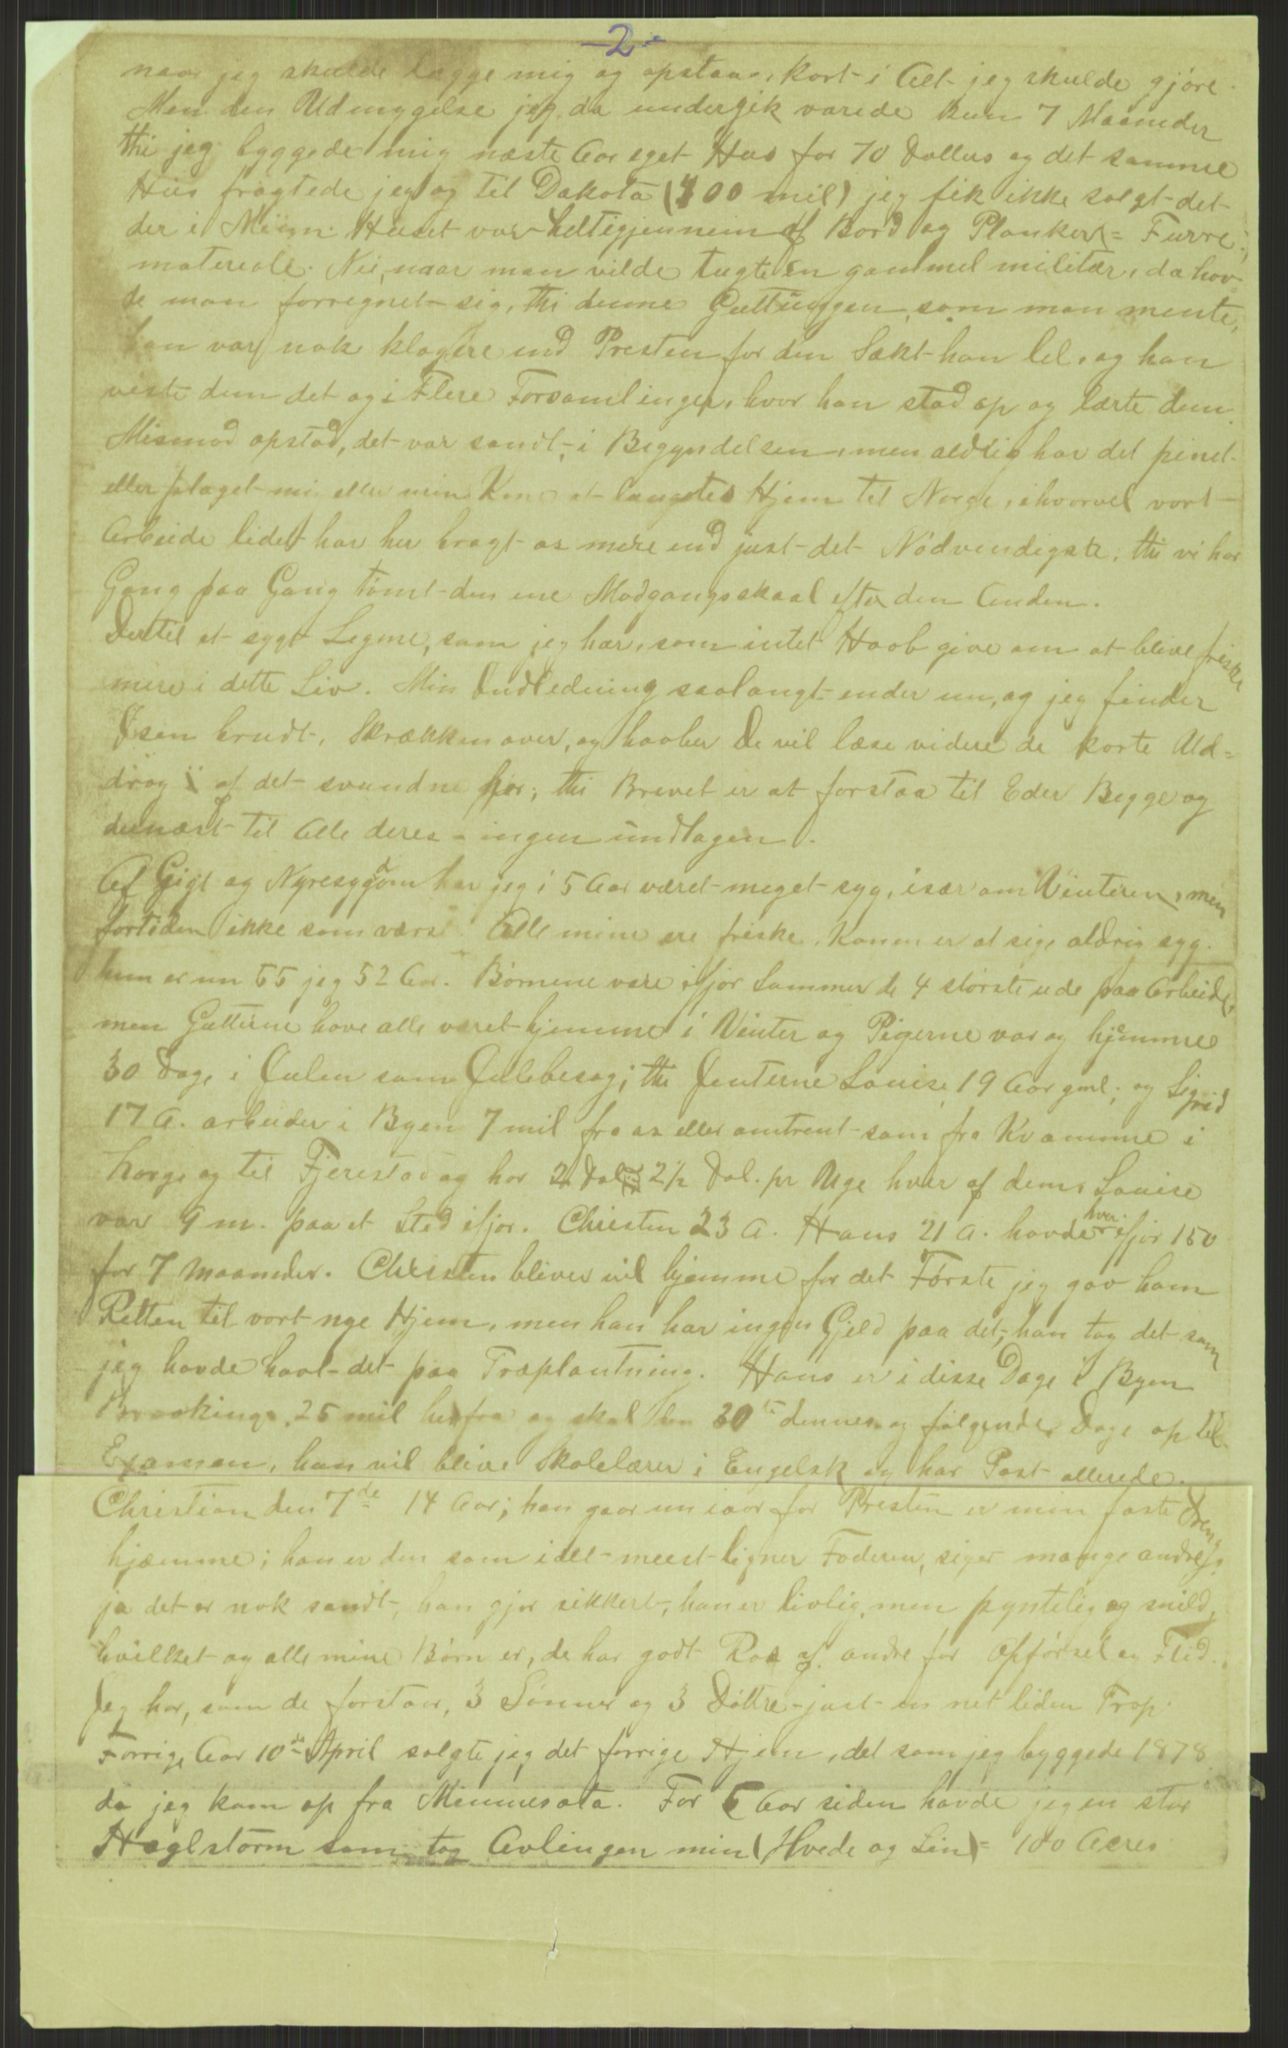 -2-
naar jeg skulde lægge mig og opstaa, kort i Alt jeg skulde gjøre.
Men den Udmygelse jeg da undergik varede kun 7 Maaneder
thi jeg byggede mig næste Aar eget Hus for 70 Dollars og det samme
Hus fragtede jeg og til Dakota (300 mil) jeg fik ikke solgt det
der i Minn. Huset var heltigjennem af Bord og Planker = Furre
materiale. Nei, naar man vilde tugte en gammel militær, da hav-
de man forregnet sig, thi denne Guttungen, som man mente,
han var nok klogere end Presten for den Sakt han lel, og han
viste dem det og i Flere Forsamlinger, hvor han stod op og lærte dem.
Mismod opstod, det var sandt, i Begyndelsen, men aldrig har det pinet
eller plaget mig eller min Kone at længtes Hjem til Norge, ihvorvel vort
Arbeide lidet har her bragt os mere end just det Nødvendigste, thi vi har
Gang paa Gang tømt den ene Modgangsskaal efter den Anden.
Dertil et sygt Legme, som jeg har, som intet Haab give om at blive friske
mere i dette Liv. Min Indledning saalangt ender nu, og jeg finder
Isen brudt, Skrækken over, og haaber De vil læse videre de korte Ud-
drag af det svundne her; thi Brevet er at forstaa til Eder Begge og
dernæst til Alle deres - ingen undtagen.
Af Gigt og Nyresygdom har jeg i 5 Aar været meget syg, især om Vinteren, men
fortiden ikke som værst. Alle mine ere friske. Konen er at sige aldrig syg.
hun er nu 55 jeg 52 Aar. Børnene vare ifjor Sommer de 4 største ude paa Arbeide,
men Gutterne have alle været hjemme i Vinter og Pigerne var og hjemme
30 Dage i Julen som Julebesøg; thi Jenterne Louise 19 Aar gml. og Sigrid
17 A. arbeider i Byen 7 mil fra os eller omtrent som fra Kvamme i
Norge og til Fjerestad og har 2 Dol til 2 1/2 Dol. pr Uge hver af dem. Louise
var 9 m. paa et Sted ifjor. Christen 23 A. Hans 21 A. havde hver ifjor 150
for 7 Maaneder. Christen bliver vel hjemme for det Første jeg gav ham
Retten til vort nye Hjem, men han har ingen Gjeld paa det, han tog det som
jeg havde havt det paa Træplantning. Hans er i disse Dage i Byen
Brookings, 25 mil herfra og skal den 30te dennes og følgende Dage op til
Examen, han vil blive Skolelærer i Engelsk og har Post allerede.
Christian den 7de 14 Aar; han gaar nu iaar for Presten er min faste Dreng
hjæmme; han er den som idel meest ligner Faderen, siger mange andre,
ja det er nok sandt, han gjør sikkert, han er livlig, men pyntelig og snild,
hvilket og alle mine Børn er, de har godt Ros af andre for Opførsel og Flid.
Jeg har, som de forstaar, 3 Sønner og 3 Døttre - just en net liden Trop.
Forrige Aar 10de April solgte jeg det førrige Hjem, det som jeg byggede 1878
da jeg kom op fra Minnesota. For 5 Aar siden havde jeg en stor
Haglstorm som tog Avlingen min (Hvede og Lin) = 100 Acres